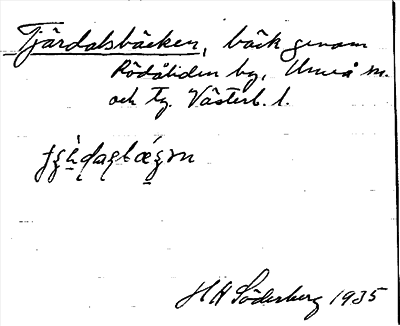 Tjärdalsbäcken, bäck genom
Rödåliden by, Umeå m.
och tg. Västerb. l.
H H Söderberg 1935